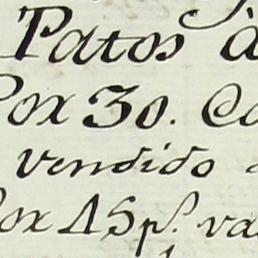 Patos à
Pox 30. Co
vendido
Pox 18 p.ˢ va